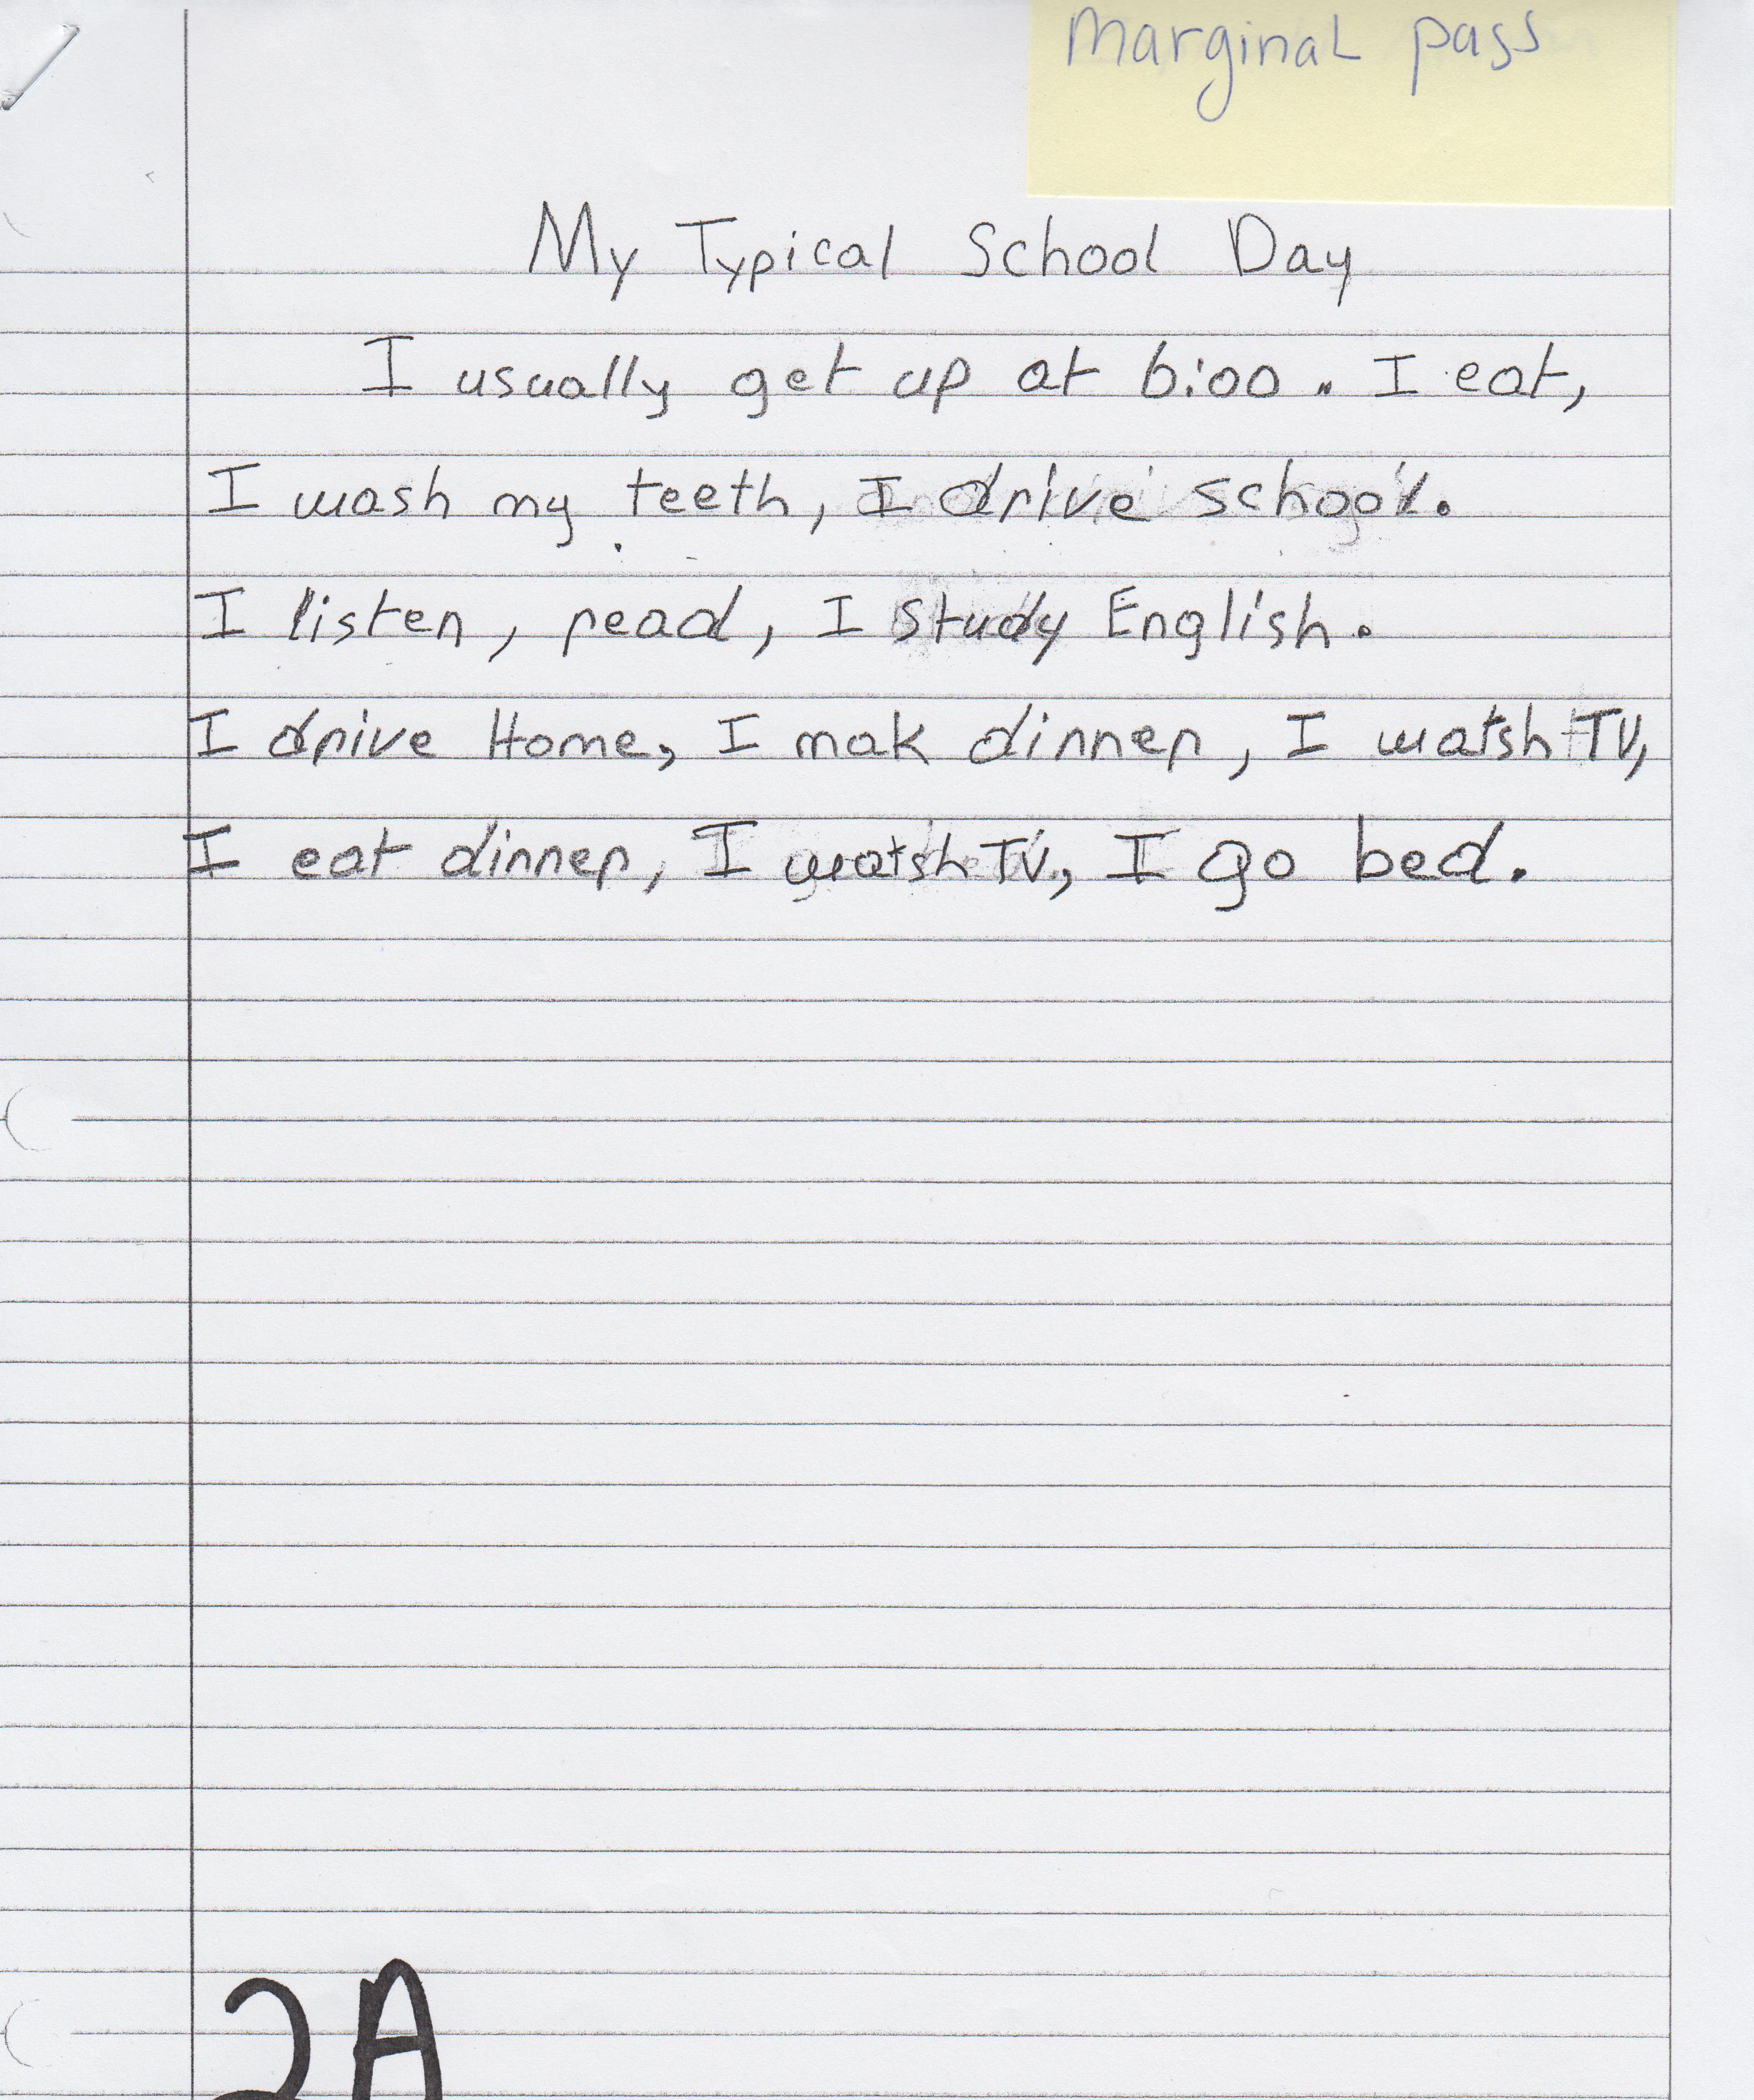 Marginal pass
My Typical School Day
I usually get up at 6:00. I eat,
I wash my teeth, I drive school.
I listen, read, I study English.
I drive Home, I mak dinner, I watsh TV,
I eat dinner, I watsh TV, I go bed.
2A